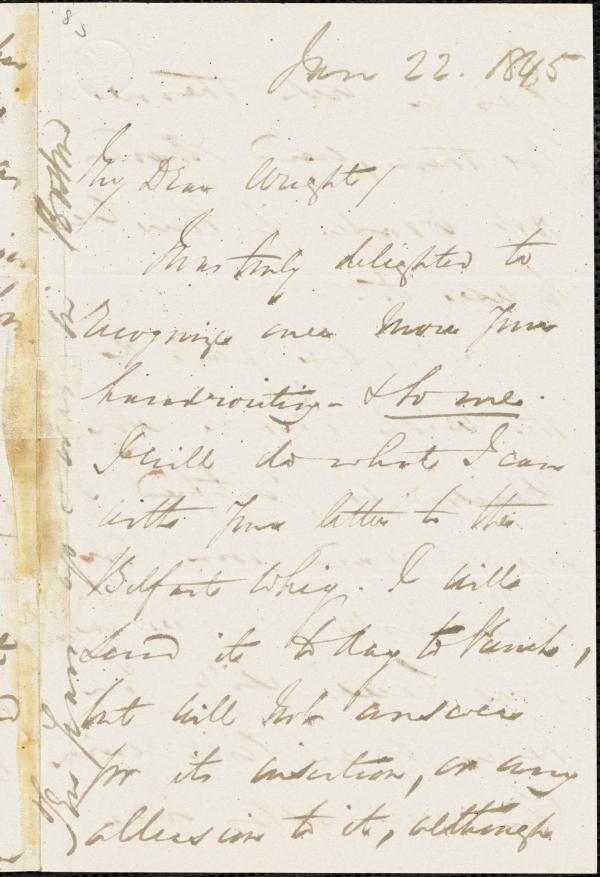 Jan 22. 1845
My Dear Wright/
I was truly delighted to
recognize once more your
handwriting - & to me.
I will do what I can
with your letter to the
Belfast Whig. I will
send it to day to Punch,
but will not answer
for its insertion, or any
allusion to it, although